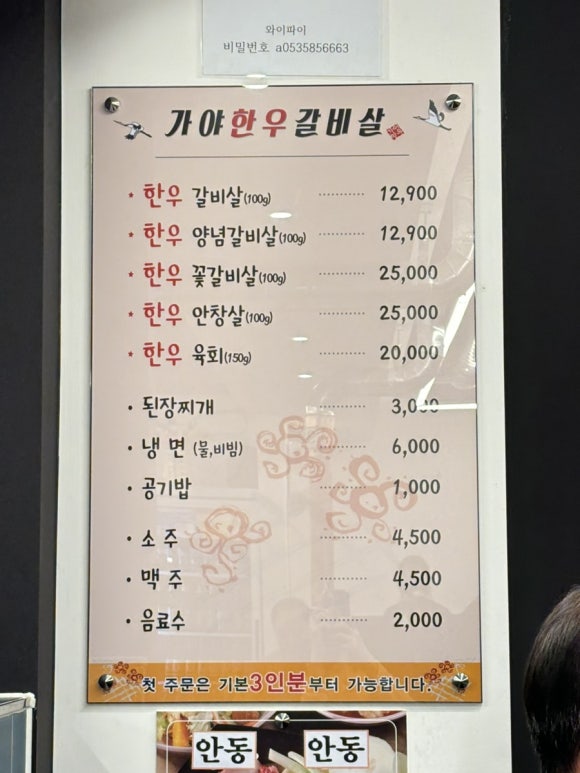 와이파이
비밀번호 a0535856663
가야한우갈비살
* 한우 갈비살(100g) ·········· 12,900
* 한우 양념갈비살(100g) ·········· 12,900
* 한우 꽃갈비살(100g) ·········· 25,000
* 한우 안창살(100g) ·········· 25,000
* 한우 육회(150g) ·········· 20,000
· 된장찌개 ·········· 3,000
· 냉 면 (물,비빔) ·········· 6,000
· 공기밥 ·········· 1,000
· 소 주 ·········· 4,500
· 맥 주 ·········· 4,500
· 음료수 ·········· 2,000
첫 주문은 기본3인분부터 가능합니다.
안동 안동